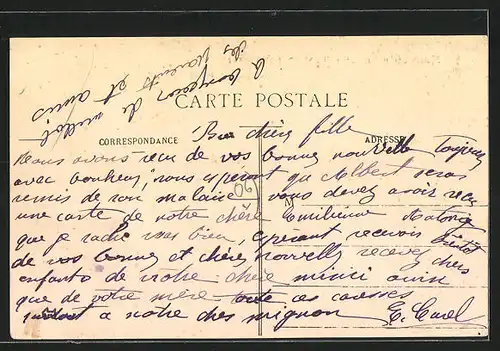 a bonjour de meille
des parents et amis
CARTE POSTALE
CORRESPONDANCE
ADRESSE
Bien chère fille
Nous avons reçu de vos bonnes nouvelle Toujours
avec bonheur, nous espérant que Albert seras
remis de son malaise vous devez avoir reçu
une carte de notre chère Emilienne
que je sache vous bien, espérant recevoir bientôt
de vos bonnes et chère nouvelle recevez chers
enfants de notre chère mimi ainsi
que de votre mère toute ces caresses
surtout a notre cher mignon E. Carel
90